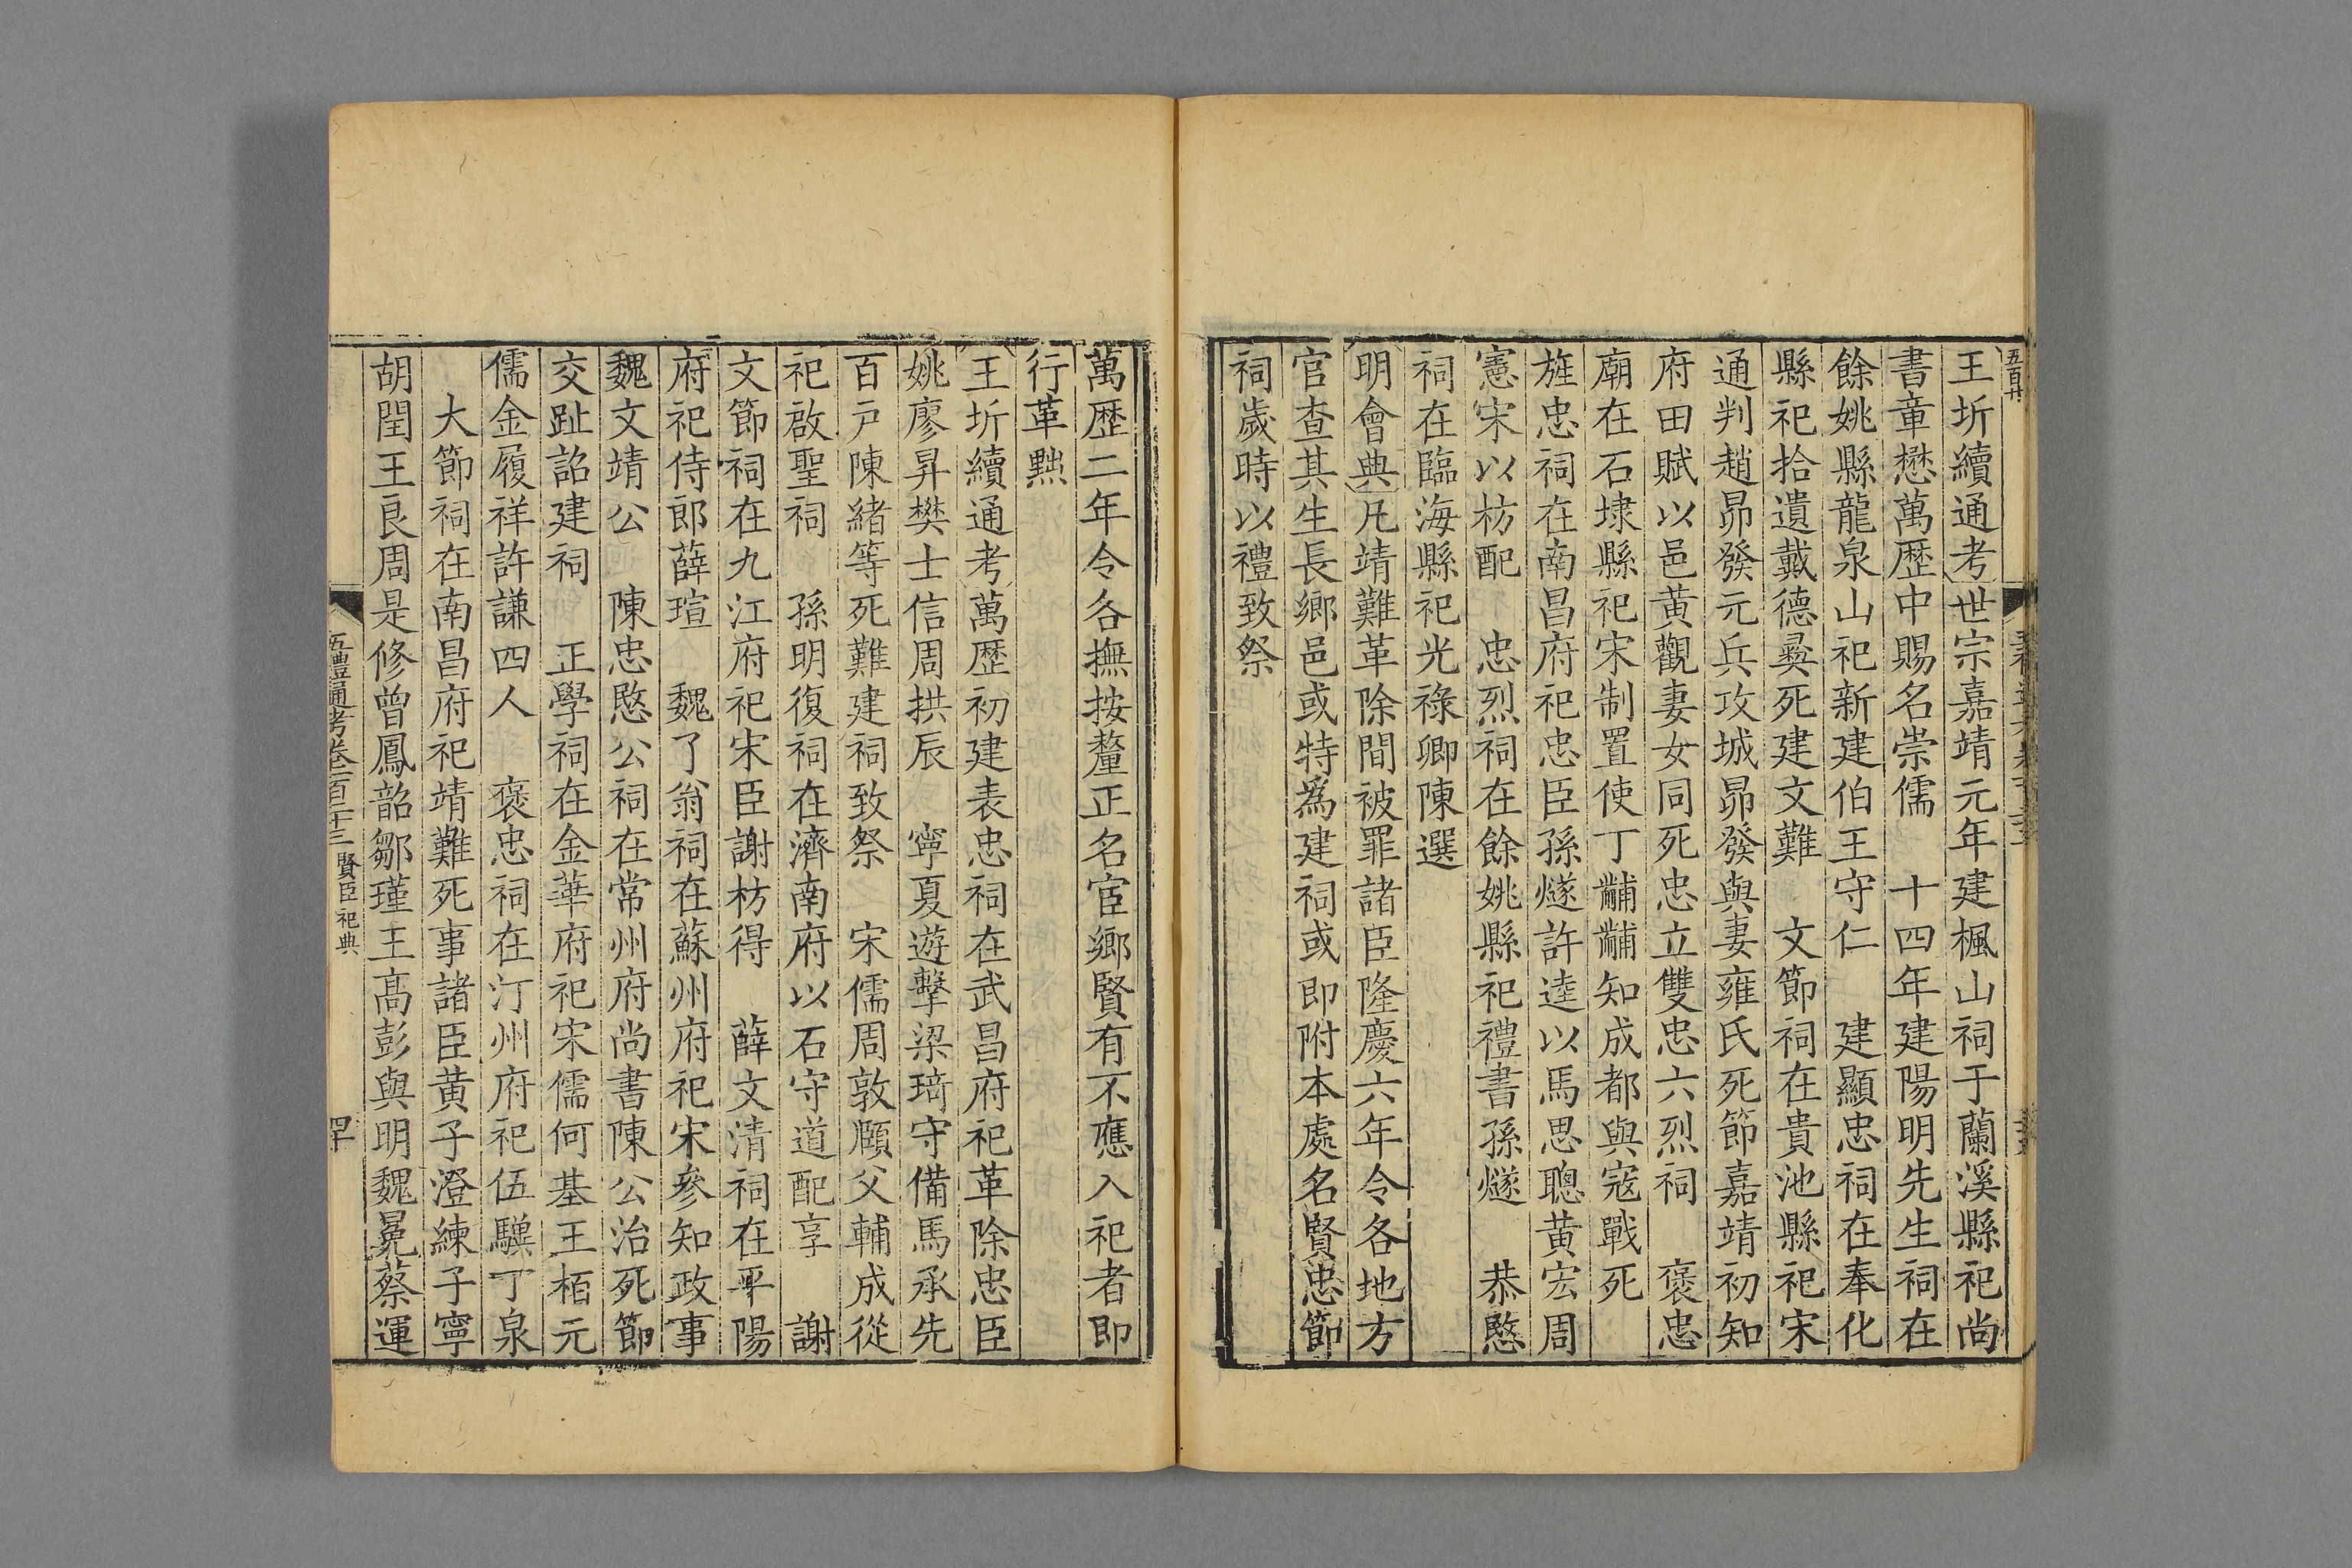 王圻續通考世宗嘉靖元年建楓山祠于蘭溪縣祀尚
書章懋萬歷中賜名崇儒　十四年建陽明先生祠在
餘姚縣龍泉山祀新建伯王守仁　建顯忠祠在奉化
縣祀拾遺戴德彝死建文難　文節祠在貴池縣祀宋
通判趙昴發元兵攻城昴發與妻雍氏死節嘉靖初知
府田賦以邑黃觀妻女同死忠立雙忠六烈祠　褒忠
廟在石埭縣祀宋制置使丁黼黼知成都與寇戰死
旌忠祠在南昌府祀忠臣孫燧許逵以馬思聰黃宏周
憲宋以枋配　忠烈祠在餘姚縣祀禮書孫燧　恭愍
祠在臨海縣祀光祿卿陳選
明會典凡靖難革除間被罪諸臣隆慶六年令各地方
官查其生長鄉邑或特為建祠或即附本處名賢忠節
祠歲時以禮致祭
萬歷二年令各撫按釐正名宦鄉賢有不應入祀者即
行革黜
王圻續通考萬歷初建表忠祠在武昌府祀革除忠臣
姚廖昇樊士信周拱辰　寧夏遊擊梁琦守備馬承先
百戶陳緒等死難建祠致祭　宋儒周敦頤父輔成從
祀啟聖祠　孫明復祠在濟南府以石守道配享　謝
文節祠在九江府祀宋臣謝枋得　薛文清祠在平陽
府祀侍郎薛瑄　魏了翁祠在蘇州府祀宋參知政事
魏文靖公　陳忠愍公祠在常州府尚書陳公洽死節
交趾詔建祠　正學祠在金華府祀宋儒何基王栢元
儒金履祥許謙四人　褒忠祠在汀州府祀伍驥丁泉
大節祠在南昌府祀靖難死事諸臣黃子澄練子寧
胡閏王良周是修曾鳳韶鄒瑾王高彭與明魏冕蔡運
五禮通考卷一百二十三　賢臣祀典